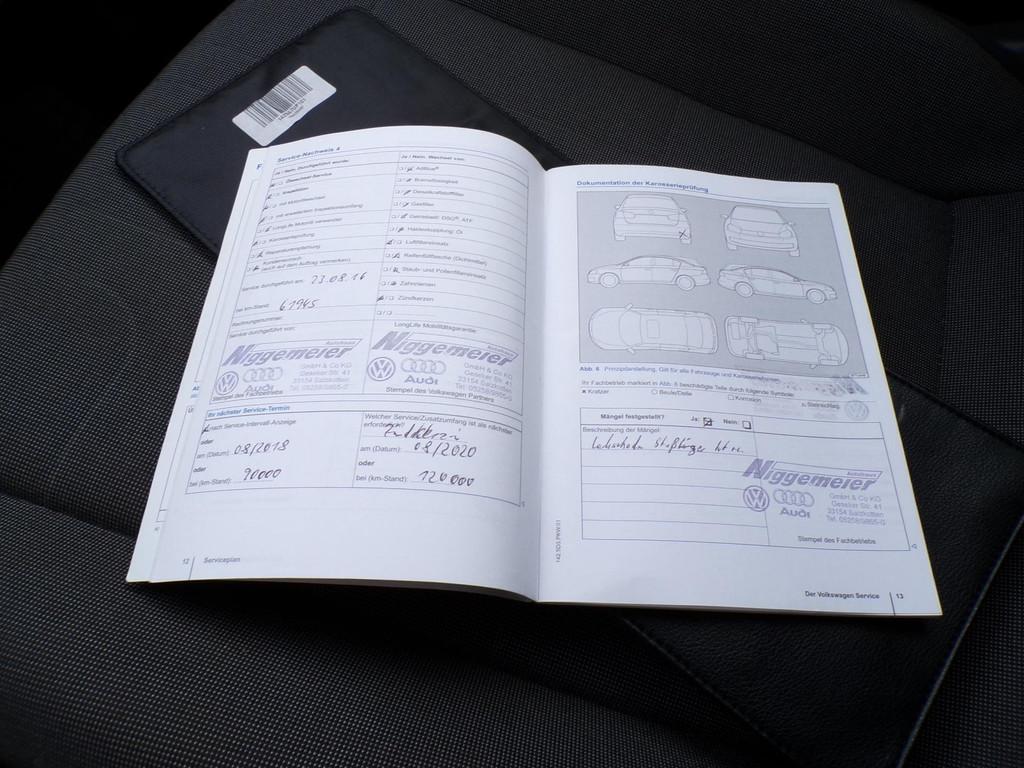 Service-Nachweis 4
Ja / Nein, Durchgeführt wurde:
Ölwechsel-Service
Inspektion:
mit Motorölwechsel
mit erweitertem Inspektionsumfang
LongLife Motoröl verwendet
Karosserieprüfung
Reparaturempfehlung
Kundenwunsch
(auch auf dem Auftrag vermerken)
Service durchgeführt am: 23.08.16
bei km-Stand: 61945
Rechnungsnummer:
Service durchgeführt von:
Autohaus
Niggemeier
GmbH & Co KG
Geseker Str. 41
33154 Salzkotten
Audi
Stempel des Fachbetriebs
Ja / Nein, Wechsel von:
AdBlue®
Bremsflüssigkeit
Dieselkraftstofffilter
Gasfilter
Getriebeöl: DSG®, ATF
Haldexkupplung: Öl
Luftfiltereinsatz
Reifenfüllflasche (Dichtmittel)
Staub- und Pollenfiltereinsatz
Zahnriemen
Zündkerzen
LongLife Mobilitätsgarantie:
Autohaus
Niggemeier
GmbH & Co KG
Geseker Str. 41
33154 Salzkotten
Audi
Stempel des Volkswagen Partners
Ihr nächster Service-Termin
nach Service-Intervall-Anzeige
oder
am (Datum): 08/2018
oder
bei (km-Stand): 90000
Welcher Service/Zusatzumfang ist als nächster
erforderlich?
am (Datum): 08/2020
oder
bei (km-Stand): 120 000
12 Serviceplan
Dokumentation der Karosserieprüfung
Abb. 6 Prinzipdarstellung. Gilt für alle Fahrzeuge und Karosserieformen.
Ihr Fachbetrieb markiert in Abb. 6 beschädigte Teile durch folgende Symbole:
x Kratzer ○ Beule/Delle □ Korrosion △ Steinschlag
Mängel festgestellt? Ja: Nein:
Beschreibung der Mängel:
Autohaus
Niggemeier
GmbH & Co KG
Geseker Str. 41
33154 Salzkotten
Tel. 05258/9855-0
Audi
Stempel des Fachbetriebs
Der Volkswagen Service 13